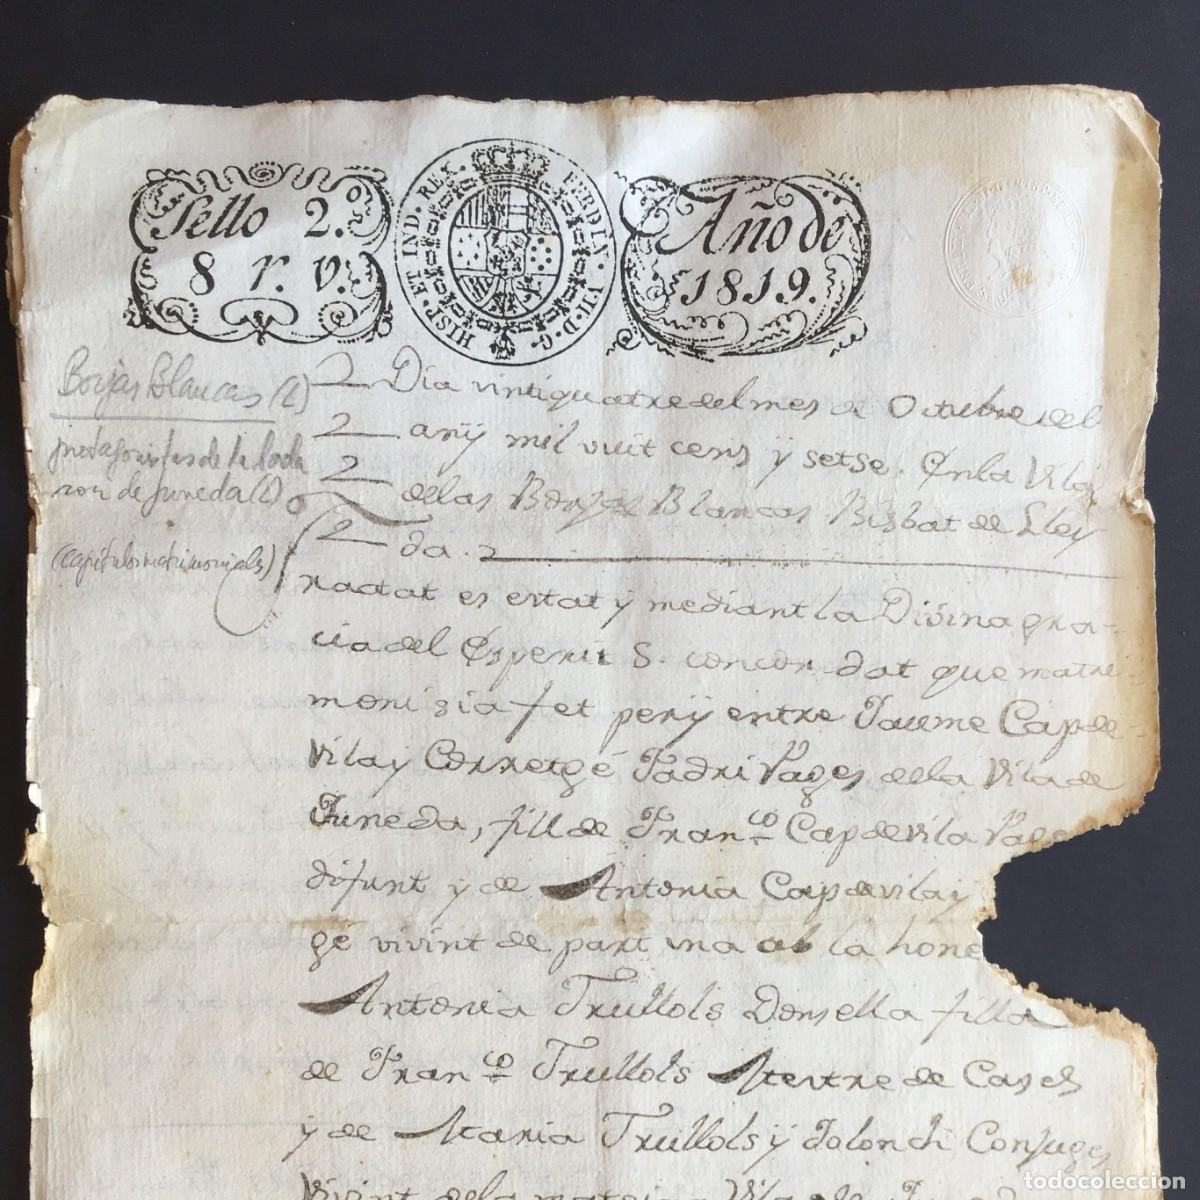 Sello 2.º
8 r. v.
HISP. ET IND. REX. FERDIN. VII. D. G.
Año de
1819.
Borjas Blancas (L)
protagonistas de la
de Juneda (L)
(capitulos matrimoniales)
Dia vintiquatre del mes de Octubre del
any mil vuit cens y setse. En la Vila
de las Borjas Blancas Bisbat de Lley
da.
ractat es estat y mediant la Divina gra-
cia del Esperit S. concordat que matri-
moni sia fet per y entre Jaume Capde-
vila y Corretgé Fadri Pages de la Vila de
Juneda, fill de Fran.co Capdevila Pages
difunt y de Antonia Capdevila y
gé vivint de part una ab la hone
Antonia Trullols Donsella filla
de Fran.co Trullols Mestre de Cases
y de Maria Trullols y Conjuges
Vivint de la mateixa Vila de
todocoleccion